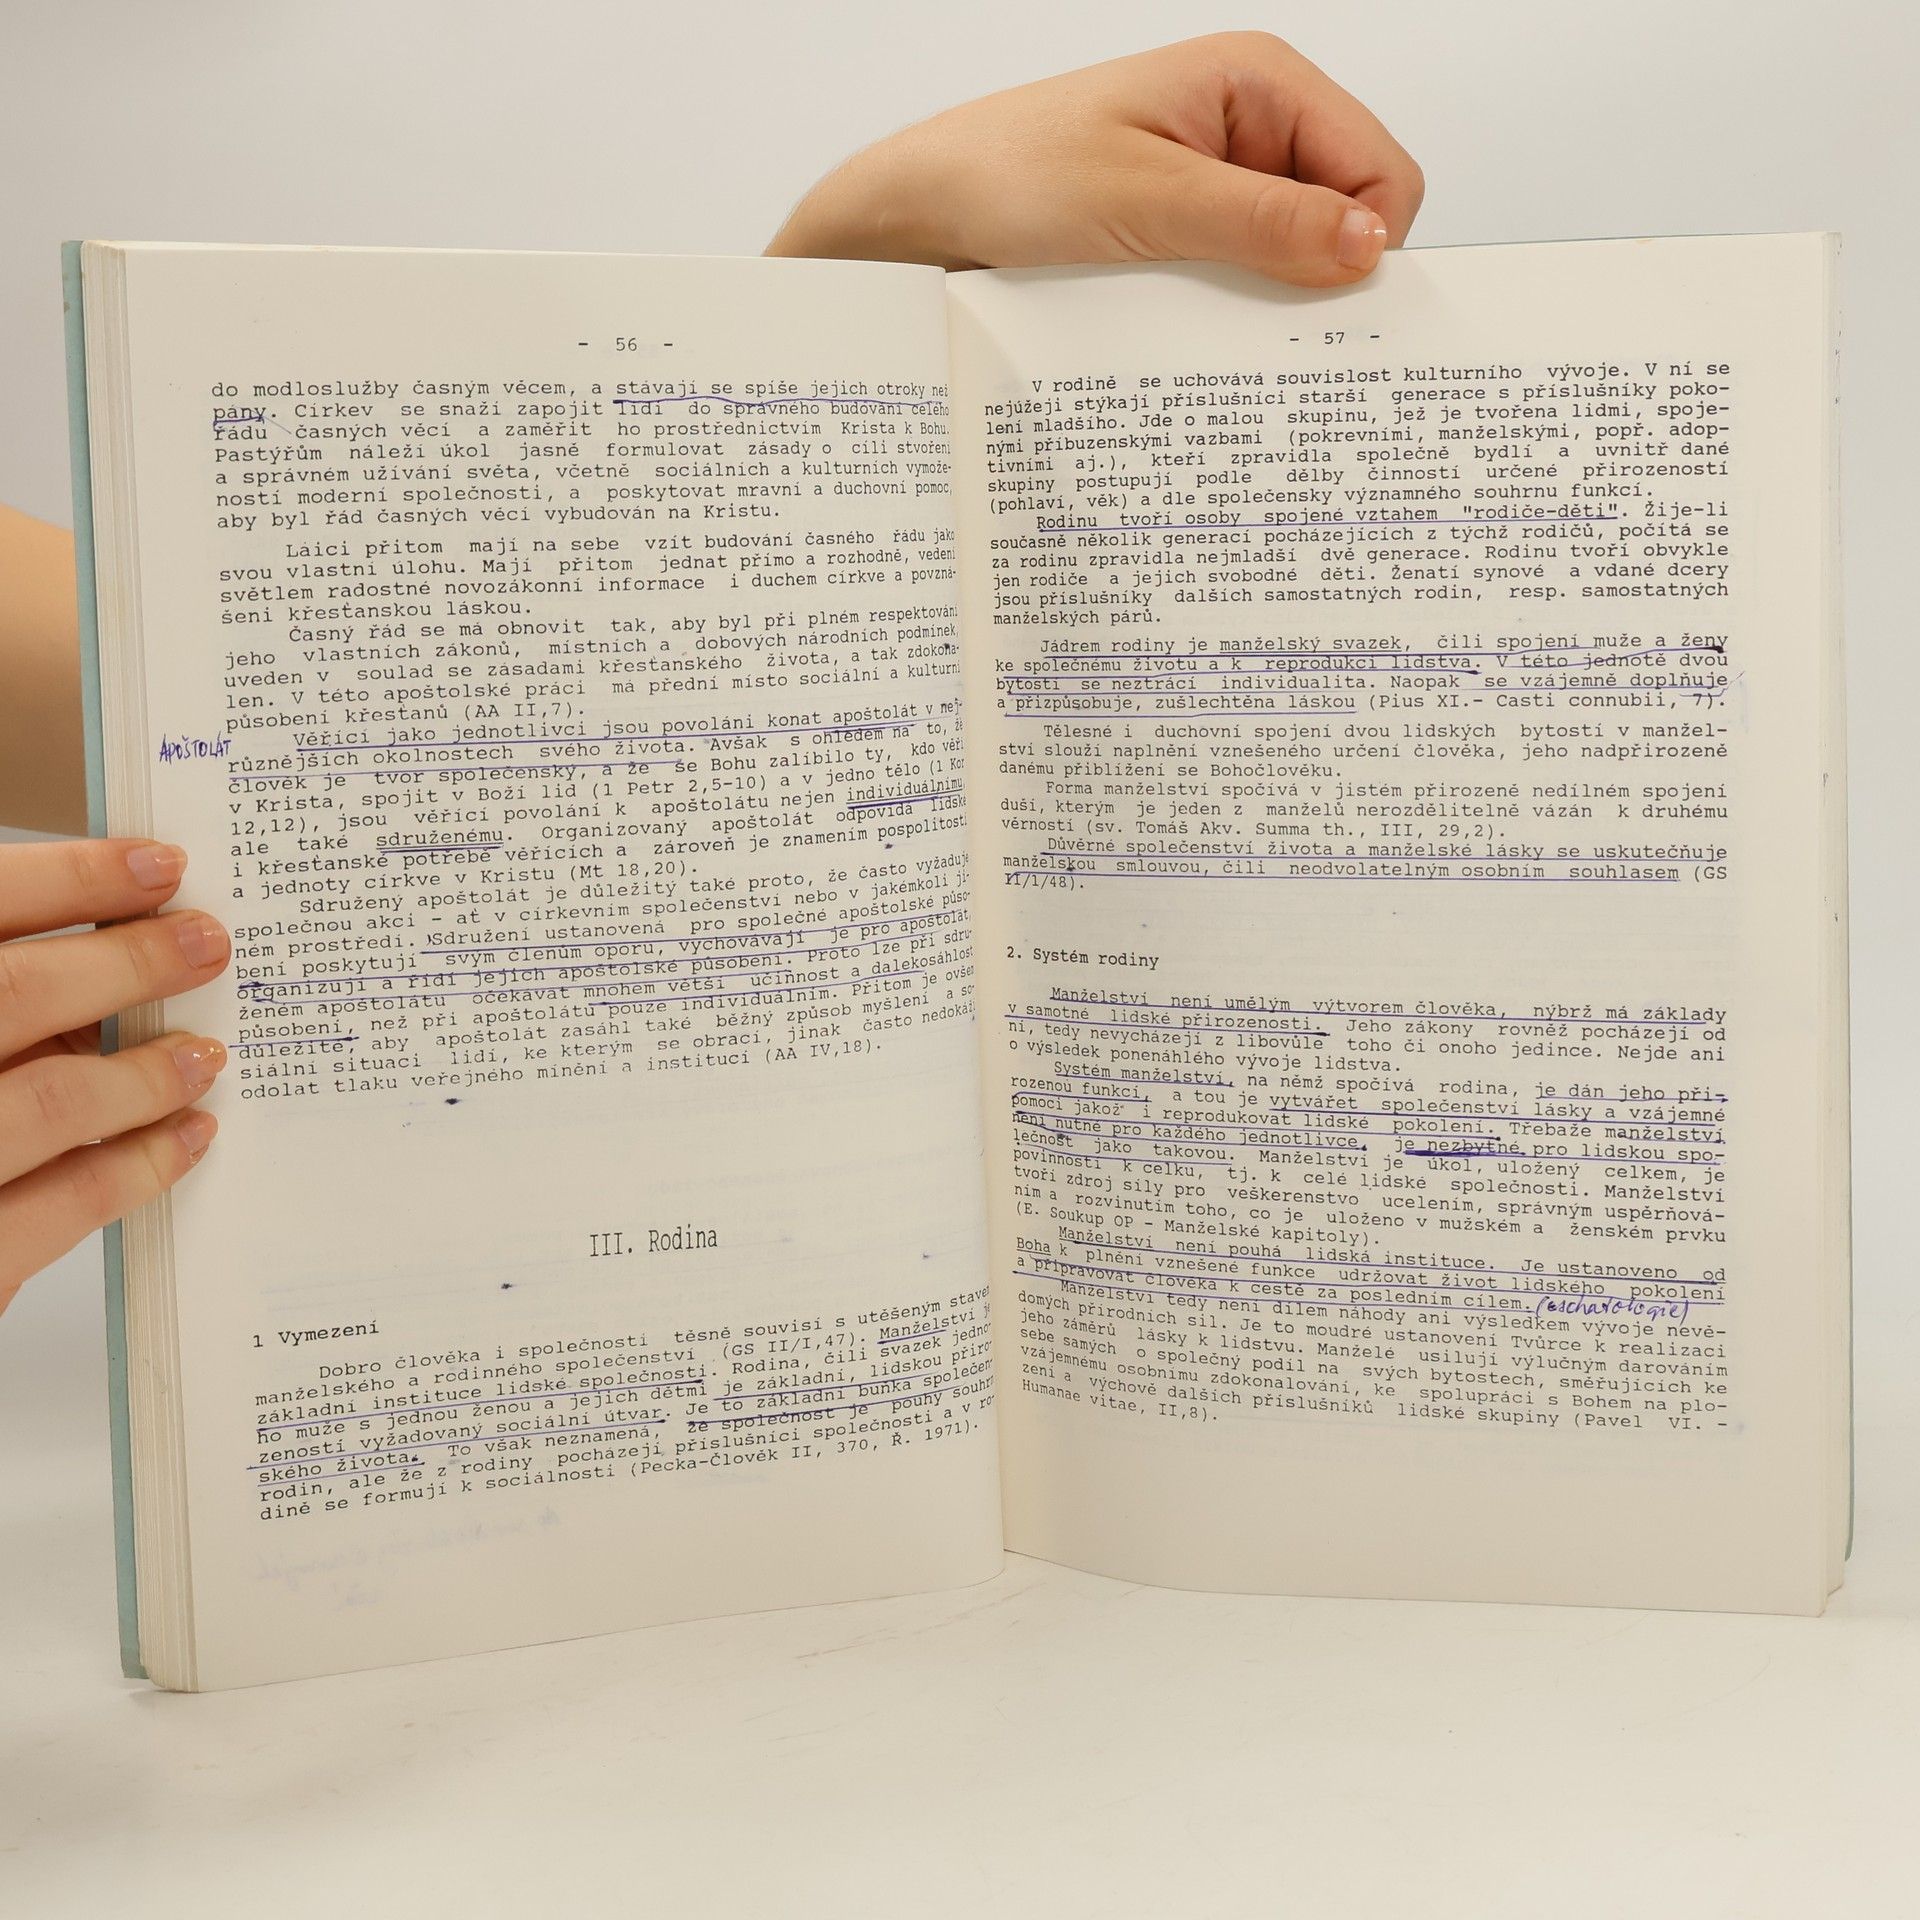 - 56 -
do modloslužby časným věcem, a stávají se spíše jejich otroky než
pány. Církev se snaží zapojit lidi do správného budování celého
řádu časných věcí a zaměřit ho prostřednictvím Krista k Bohu.
Pastýřům náleží úkol jasně formulovat zásady o cíli stvoření
a správném užívání světa, včetně sociálních a kulturních vymože-
ností moderní společnosti, a poskytovat mravní a duchovní pomoc,
aby byl řád časných věcí vybudován na Kristu.
Laici přitom mají na sebe vzít budování časného řádu jako
svou vlastní úlohu. Mají přitom jednat přímo a rozhodně, vedeni
světlem radostné novozákonní informace i duchem církve a povzná-
šeni křesťanskou láskou.
Časný řád se má obnovit tak, aby byl při plném respektování
jeho vlastních zákonů, místních a dobových národních podmínek,
uveden v soulad se zásadami křesťanského života, a tak zdokona-
len. V této apoštolské práci má přední místo sociální a kulturní
působení křesťanů (AA II,7).
Věřící jako jednotlivci jsou povoláni konat apoštolát v nej-
APOŠTOLÁT
různějších okolnostech svého života. Avšak s ohledem na to, že
člověk je tvor společenský, a že se Bohu zalíbilo ty, kdo věří
v Krista, spojit v Boží lid (1 Petr 2,5-10) a v jedno tělo (1 Kor
12,12), jsou věřící povoláni k apoštolátu nejen individuálnímu,
ale také sdruženému. Organizovaný apoštolát odpovídá lidské
i křesťanské potřebě věřících a zároveň je znamením pospolitosti
a jednoty církve v Kristu (Mt 18,20).
Sdružený apoštolát je důležitý také proto, že často vyžaduje
společnou akci - ať v církevním společenství nebo v jakémkoli ji-
ném prostředí. Sdružení ustanovená pro společné apoštolské půso-
bení poskytují svým členům oporu, vychovávají je pro apoštolát,
organizují a řídí jejich apoštolské působení. Proto lze při sdru-
ženém apoštolátu očekávat mnohem větší účinnost a dalekosáhlost
působení, než při apoštolátu pouze individuálním. Přitom je ovšem
důležité, aby apoštolát zasáhl také běžný způsob myšlení a so-
siální situaci lidí, ke kterým se obrací, jinak často nedokáží
odolat tlaku veřejného mínění a institucí (AA IV,18).
III. Rodina
1 Vymezení
Dobro člověka i společnosti těsně souvisí s utěšeným stavem
manželského a rodinného společenství (GS II/I,47). Manželství je
základní instituce lidské společnosti. Rodina, čili svazek jedno-
ho muže s jednou ženou a jejich dětmi je základní, lidskou přiro-
zeností vyžadovaný sociální útvar. Je to základní buňka společen-
ského života. To však neznamená, že společnost je pouhý souhrn
rodin, ale že z rodiny pocházejí příslušníci společnosti a v ro-
dině se formují k sociálnosti (Pecka-Člověk II, 370, Ř. 1971).
- 57 -
V rodině se uchovává souvislost kulturního vývoje. V ní se
nejúžeji stýkají příslušníci starší generace s příslušníky poko-
lení mladšího. Jde o malou skupinu, jež je tvořena lidmi, spoje-
nými příbuzenskými vazbami (pokrevními, manželskými, popř. adop-
tivními aj.), kteří zpravidla společně bydlí a uvnitř dané
skupiny postupují podle dělby činností určené přirozeností
(pohlaví, věk) a dle společensky významného souhrnu funkcí.
Rodinu tvoří osoby spojené vztahem "rodiče-děti". Žije-li
současně několik generací pocházejících z týchž rodičů, počítá se
za rodinu zpravidla nejmladší dvě generace. Rodinu tvoří obvykle
jen rodiče a jejich svobodné děti. Ženatí synové a vdané dcery
jsou příslušníky dalších samostatných rodin, resp. samostatných
manželských párů.
Jádrem rodiny je manželský svazek, čili spojení muže a ženy
ke společnému životu a k reprodukci lidstva. V této jednotě dvou
bytostí se neztrácí individualita. Naopak se vzájemně doplňuje
a přizpůsobuje, zušlechtěna láskou (Pius XI.- Casti connubii, 7).
Tělesné i duchovní spojení dvou lidských bytostí v manžel-
ství slouží naplnění vznešeného určení člověka, jeho nadpřirozeně
danému přiblížení se Bohočlověku.
Forma manželství spočívá v jistém přirozeně nedílném spojení
duší, kterým je jeden z manželů nerozdělitelně vázán k druhému
věrností (sv. Tomáš Akv. Summa th., III, 29,2).
Důvěrné společenství života a manželské lásky se uskutečňuje
manželskou smlouvou, čili neodvolatelným osobním souhlasem (GS
II/1/48).
2. Systém rodiny
Manželství není umělým výtvorem člověka, nýbrž má základy
v samotné lidské přirozenosti. Jeho zákony rovněž pocházejí od
ní, tedy nevycházejí z libovůle toho či onoho jedince. Nejde ani
o výsledek ponenáhlého vývoje lidstva.
Systém manželství, na němž spočívá rodina, je dán jeho při-
rozenou funkcí, a tou je vytvářet společenství lásky a vzájemné
pomoci jakož i reprodukovat lidské pokolení. Třebaže manželství
není nutné pro každého jednotlivce, je nezbytné pro lidskou spo-
lečnost jako takovou. Manželství je úkol, uložený celkem, je
povinností k celku, tj. k celé lidské společnosti. Manželství
tvoří zdroj síly pro veškerenstvo ucelením, správným uspěrňová-
ním a rozvinutím toho, co je uloženo v mužském a ženském prvku
(E. Soukup OP - Manželské kapitoly).
Manželství není pouhá lidská instituce. Je ustanoveno od
Boha k plnění vznešené funkce udržovat život lidského pokolení
a připravovat člověka k cestě za posledním cílem. (eschatologie)
Manželství tedy není dílem náhody ani výsledkem vývoje nevě-
domých přírodních sil. Je to moudré ustanovení Tvůrce k realizaci
jeho záměrů lásky k lidstvu. Manželé usilují výlučným darováním
sebe samých o společný podíl na svých bytostech, směřujících ke
vzájemnému osobnímu zdokonalování, ke spolupráci s Bohem na plo-
zení a výchově dalších příslušníků lidské skupiny (Pavel VI. -
Humanae vitae, II,8).